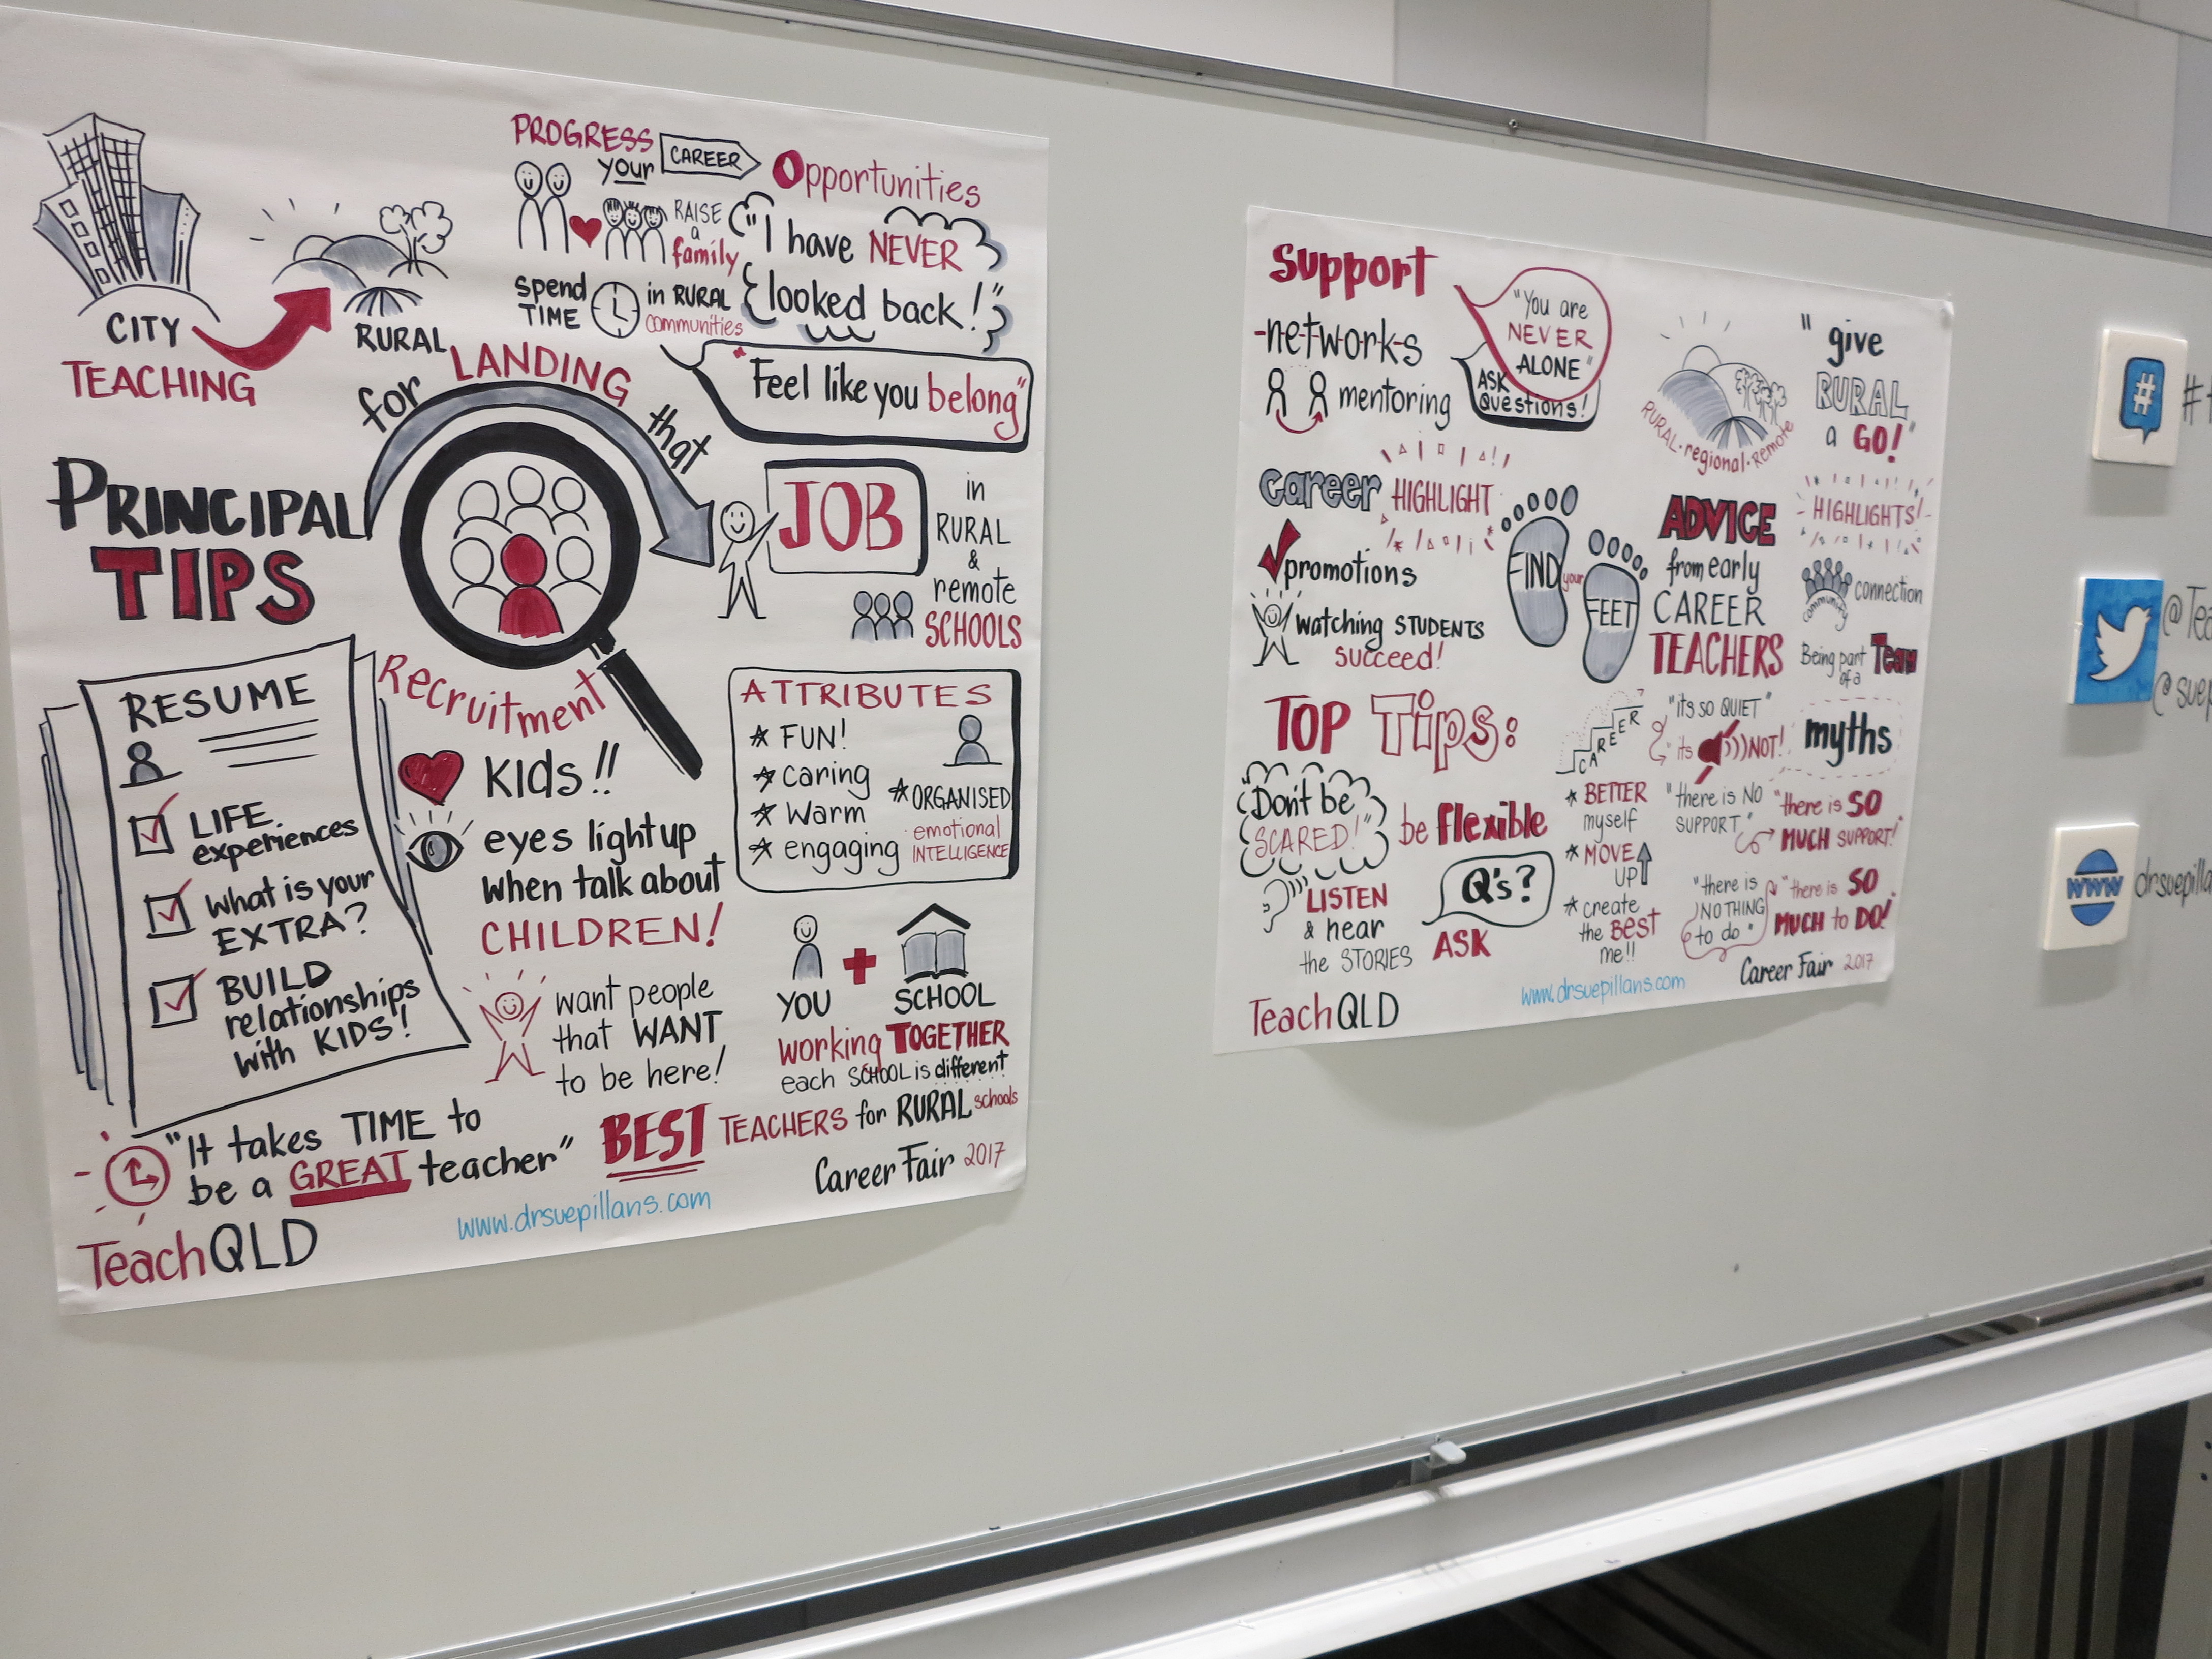 CITY
TEACHING
RURAL
PROGRESS
your CAREER
Opportunities
RAISE
a
family
spend
TIME
in RURAL
communities
"I have NEVER
looked back!"
"Feel like you belong"
PRINCIPAL
TIPS
for LANDING that
JOB
in
RURAL
&
remote
SCHOOLS
Recruitment
RESUME
LIFE
experiences
What is your
EXTRA?
BUILD
relationships
with KIDS!
KIds!!
eyes light up
when talk about
CHILDREN!
want people
that WANT
to be here!
ATTRIBUTES
FUN!
caring
Warm
engaging
ORGANISED
emotional
INTELLIGENCE
YOU
SCHOOL
working TOGETHER
each SCHOOL is different
"It takes TIME to
be a GREAT teacher"
BEST TEACHERS for RURAL schools
Career Fair 2017
www.drsuepillans.com
TeachQLD
Support
-networks
mentoring
"You are
NEVER
ALONE"
ASK
Questions!
RURAL·regional·Remote
"give
RURAL
a GO!"
career HIGHLIGHT
promotions
watching STUDENTS
succeed!
FIND your FEET
ADVICE
from early
CAREER
TEACHERS
HIGHLIGHTS!
community
connection
Being part
of a
Team
TOP Tips:
Don't be
SCARED!"
be flexible
LISTEN
& hear
the STORIES
Q's?
ASK
CAREER
* BETTER
myself
* MOVE
UP
* create
the BEST
me!!
"its so QUIET"
"its NOT!
myths
"there is NO
SUPPORT"
"there is SO
MUCH SUPPORT!"
"there is
NOTHING
to do"
"there is SO
MUCH to DO!"
Career Fair 2017
www.drsuepillans.com
TeachQLD
#
www